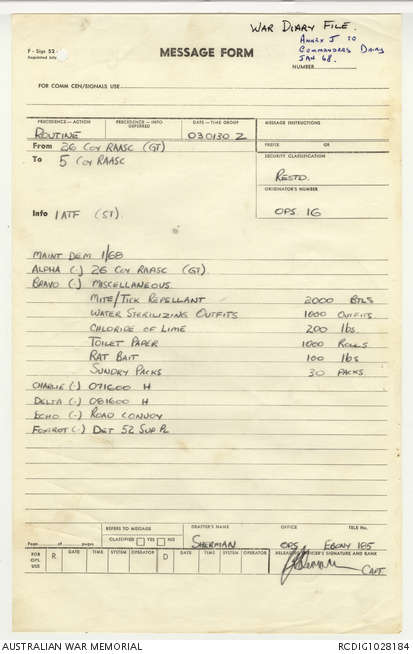 WAR DIARY FILE.
ANNEX J TO
COMMANDERS DIARY
JAN 68.
F - Sigs 52
MESSAGE FORM
NUMBER
FOR COMM CEN/SIGNALS USE
PRECEDENCE—ACTION PRECEDENCE—INFO DEFERRED DATE—TIME GROUP MESSAGE INSTRUCTIONS
ROUTINE 030130 Z
From 26 COY RAASC (GT) PREFIX GR
To 5 COY RAASC SECURITY CLASSIFICATION
RESTD.
ORIGINATOR'S NUMBER
Info 1 ATF (ST). OPS. 16
MAINT DEM 1/68
ALPHA (.) 26 COY RAASC (GT).
BRAVO (.) MISCELLANEOUS.
MITE/TICK REPELLANT 2000 BTLS
WATER STERILIZING OUTFITS 1000 OUTFITS
CHLORIDE OF LIME 200 lbs.
TOILET PAPER 1000 ROLLS
RAT BAIT 100 lbs
SUNDRY PACKS 30 PACKS.
CHARLIE (.) 071600 H
DELTA (.) 081600 H
ECHO (.) ROAD CONVOY
FOXTROT (.) DET 52 SUP PL
REFERS TO MESSAGE DRAFTER'S NAME OFFICE TELE No.
Page of pages CLASSIFIED YES NO SHERMAN OPS EBONY 185
FOR OPS. USE R DATE TIME SYSTEM OPERATOR D DATE TIME SYSTEM OPERATOR RELEASING OFFICER'S SIGNATURE AND RANK
CAPT.
AUSTRALIAN WAR MEMORIAL RCDIG1028184